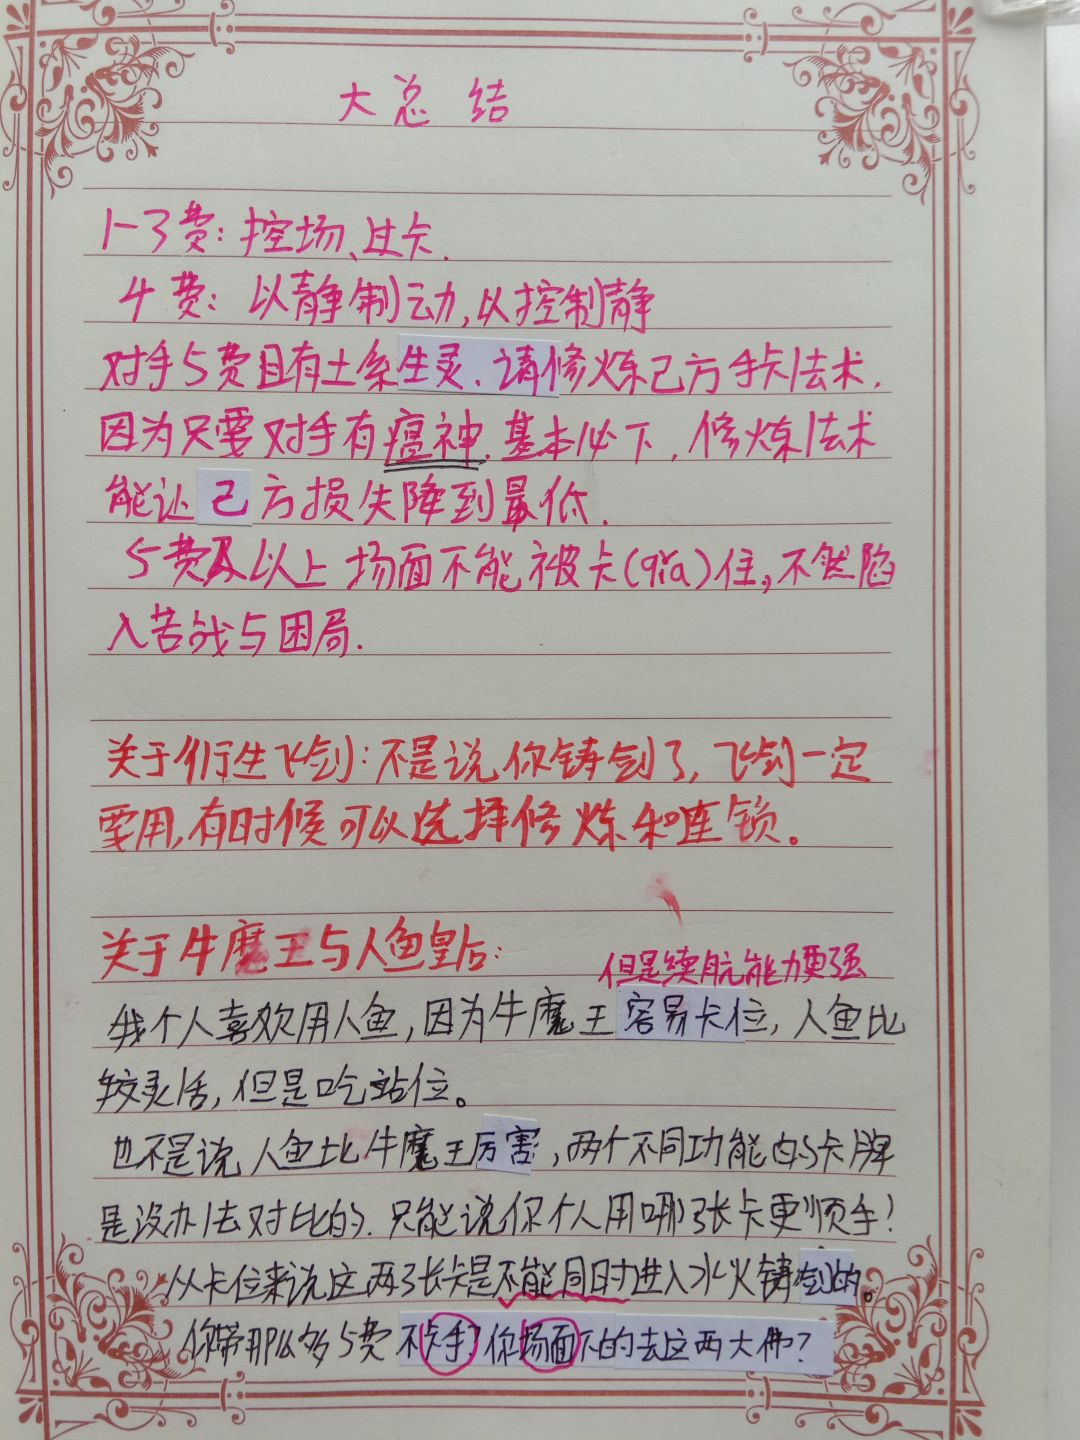 大总结
1-3费：控场、过卡.
4费：以静制动,以控制静
对手5费且有土系生灵.请修炼己方手卡法术.
因为只要对手有瘟神.基本必下.修炼法术
能让己方损失降到最低.
5费及以上场面不能被卡(qia)住,不然陷
入苦战与困局.
关于衍生飞剑:不是说你铸剑了,飞剑一定
要用,有时候可以选择修炼和连锁。
关于牛魔王与人鱼皇后:
但是续航能力更强
我个人喜欢用人鱼,因为牛魔王容易卡位,人鱼比
较灵活,但是吃站位。
也不是说人鱼比牛魔王厉害,两个不同功能的卡牌
是没办法对比的.只能说你个人用哪张卡更顺手!
从卡位来说这两张卡是不能同时进入水火铸剑的。
你带那么多5费不卡手?你场面下的去这两大佛?